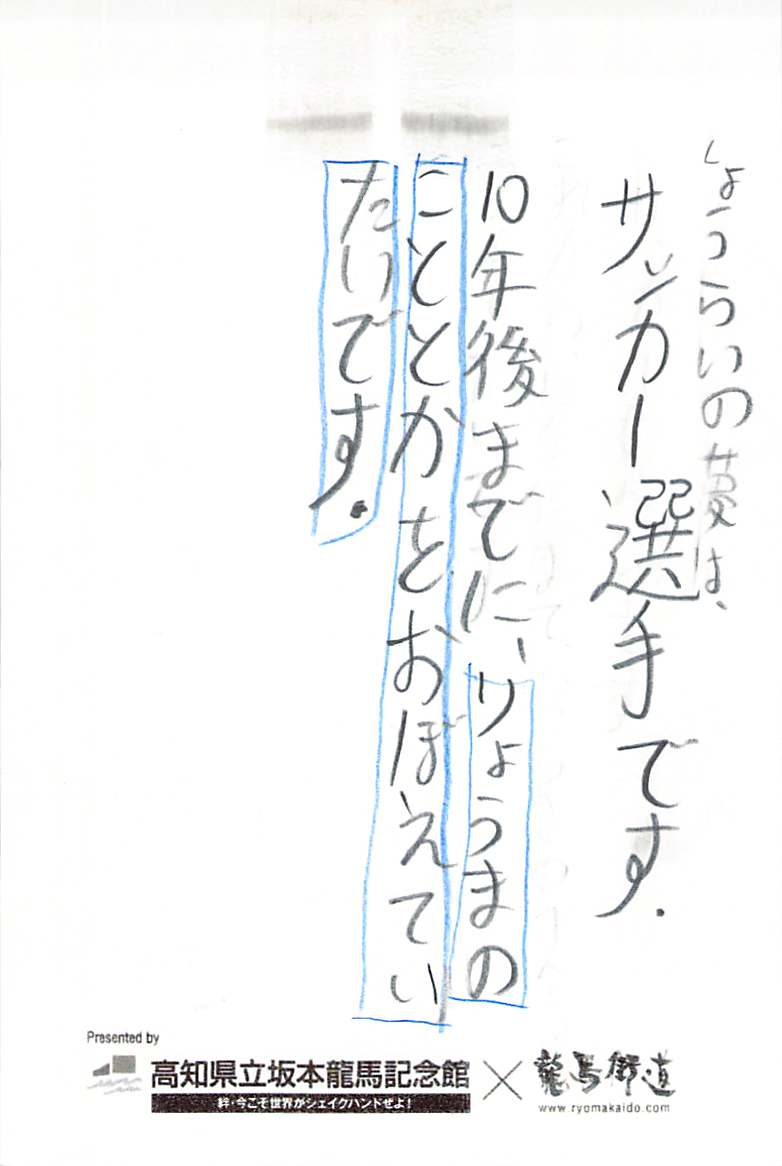 しょうらいの夢は、
サッカー選手です.
10年後までに、りょうまの
こととかをおぼえてい
たいです.
Presented by
高知県立坂本龍馬記念館 × 龍馬街道
絆・今こそ世界がシェイクハンドぜよ！
www.ryomakaido.com